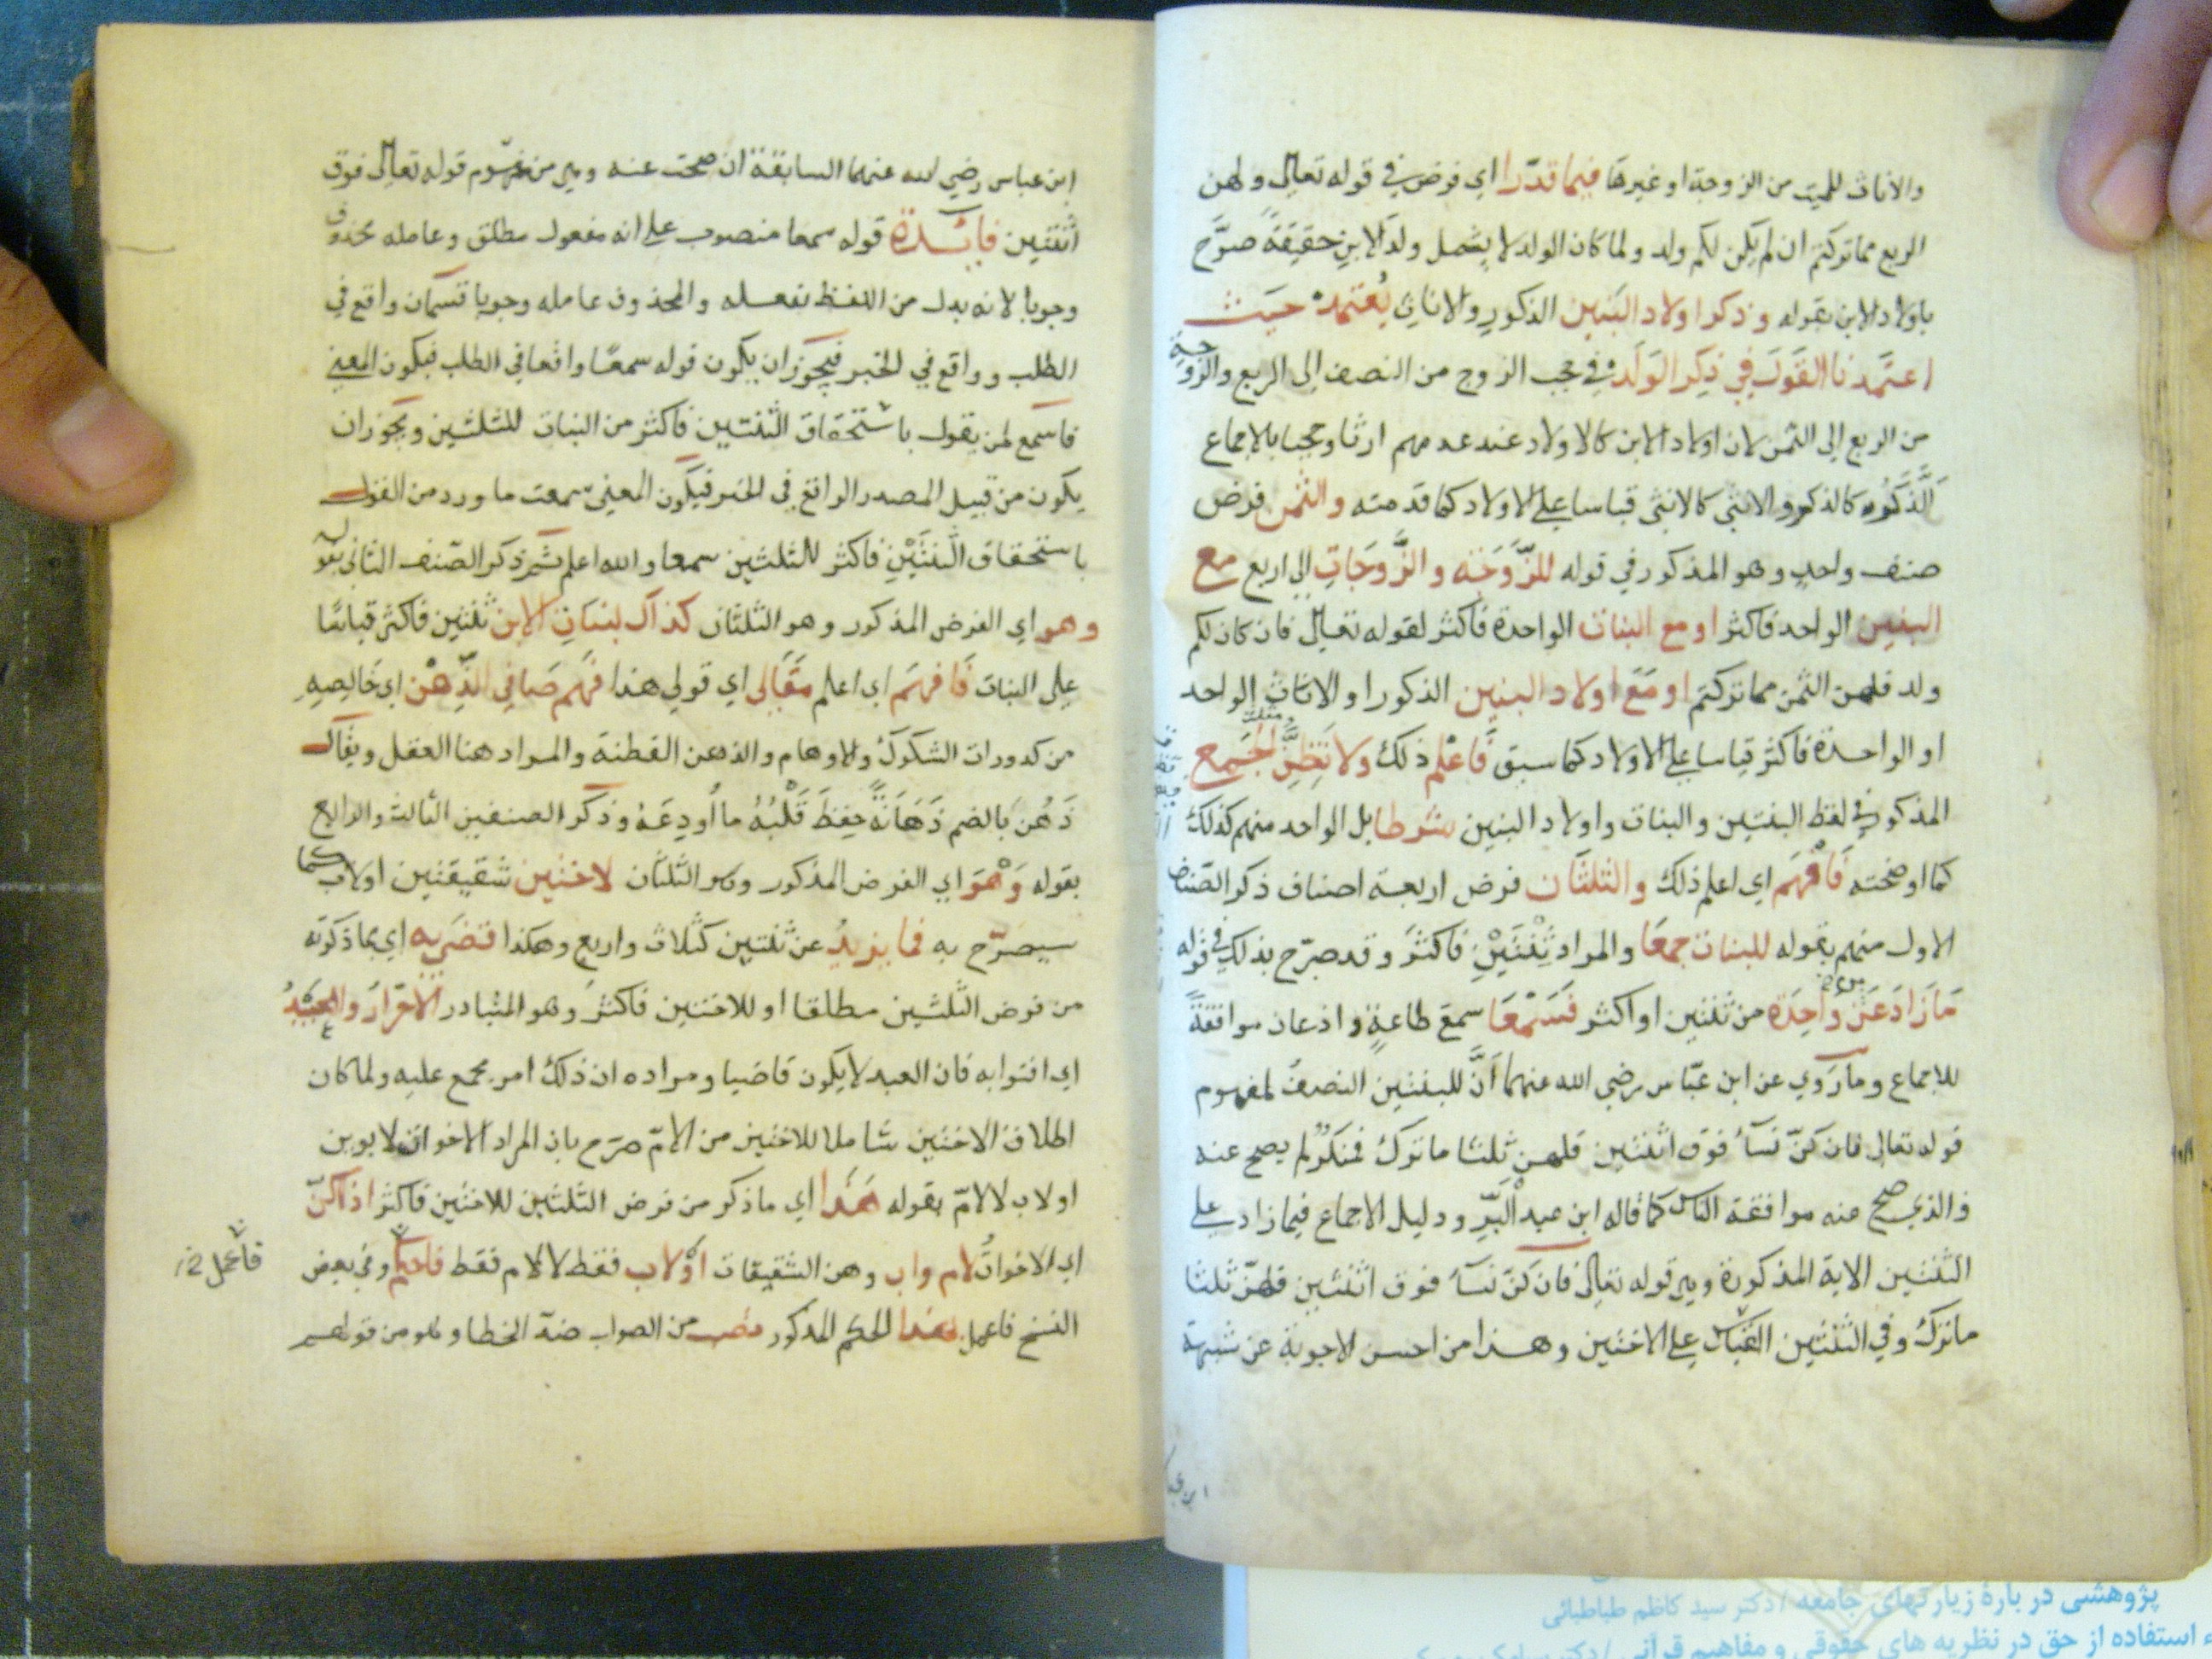 والاناث للميت من الزوجة او غيرها فيما قدّرا اي فرض في قوله تعالى ولهن
الربع مما تركتم ان لم يكن لكم ولد ولما كان الولد لا يشمل ولد الابن حقيقة صرّح
باولاد الابن بقوله وذكر اولاد البنين الذكور والاناث يُعتمد حيث
اعتمدنا القول في ذكر الولد في حجب الزوج من النصف الى الربع والزوجة
من الربع الى الثمن لان اولاد الابن كالاولاد عند عدمهم ارثا وحجبا بالاجماع
الذكور كالذكور والانثى كالانثى قياسا على الاولاد كما قدمته والثمن فرض
صنف واحد وهو المذكور في قوله للزوجة والزوجات الى اربع مع
البنين الواحد فاكثر او مع البنات الواحدة فاكثر لقوله تعالى فان كان لكم
ولد فلهن الثمن مما تركتم او مع اولاد البنين الذكور او الاناث الواحد
او الواحدة فاكثر قياسا على الاولاد كما سبق فاعلم ذلك ولا تظن الجمع
المذكور في لفظ البنتين والبنات واولاد البنين شرطا بل الواحد منهم كذلك
كما اوضحته فافهم اي اعلم ذلك والثلثان فرض اربعة اصناف ذكر الصنف
الاول منهم بقوله للبنات جمعا والمراد ثنتين فاكثر وقد صرّح بذلك في قوله
ما زاد عن واحدة من ثنتين او اكثر فسمعا سمع طاعة واذعان موافقة
للاجماع وما روي عن ابن عبّاس رضي الله عنهما انّ للبنتين النصف لمفهوم
قوله تعالى فان كنّ نسآء فوق اثنتين فلهن ثلثا ما ترك فمنكر لم يصح عنه
والذي صح عنه موافقة الناس كما قاله ابن عبد البرّ ودليل الاجماع فيما زاد على
الثنتين الاية المذكورة وهي قوله تعالى فان كنّ نسآء فوق اثنتين فلهنّ ثلثا
ما ترك وفي الثنتين القياس على الاختين وهذا من احسن الاجوبة عن شبهة
ابن عباس رضي الله عنهما السابقة ان صحت عنه وهي من مفهوم قوله تعالى فوق
اثنتين فائدة قوله سمعا منصوب على انه مفعول مطلق وعامله محذوف
وجوبا لانه بدل من اللفظ بفعله والمحذوف عامله وجوبا قسمان واقع في
الطلب وواقع في الخبر فيجوز ان يكون قوله سمعا واقعا في الطلب فيكون المعنى
فاسمع لمن يقول باستحقاق الثنتين فاكثر من البنات للثلثين ويجوز ان
يكون من قبيل المصدر الواقع في الخبر فيكون المعنى سمعت ما ورد من القول
باستحقاق البنتين فاكثر للثلثين سمعا والله اعلم ثم ذكر الصنف الثاني بقوله
وهو اي الفرض المذكور وهو الثلثان كذاك لبنات الابن ثنتين فاكثر قياسا
على البنات فافهم اي اعلم مقالي اي قولي هذا فهم صافي الذهن اي خالصه
من كدورات الشكوك والاوهام والذهن الفطنة والمراد هنا العقل ويقال
ذهُن بالضم ذهانة حفظ قلبه ما اُودعه وذكر الصنفين الثالث والرابع
بقوله وهو اي الفرض المذكور وهو الثلثان لاختين شقيقتين او لاب كما
سيصرّح به فما يزيد عن ثنتين كثلاث واربع وهكذا قضى به اي بما ذكرته
من فرض الثلثين مطلقا او للاختين فاكثر وهو المتبادر الاحرار والعبيد
اي افتوا به فان العبد لا يكون قاضيا ومراده ان ذلك امر مجمع عليه ولما كان
اطلاق الاختين شاملا للاختين من الامّ صرّح بان المراد الاخوات لابوين
او لاب لا لامّ بقوله هذا اي ما ذكر من فرض الثلثين للاختين فاكثر اذا كنّ
اي الاخوات لام واب وهن الشقيقات او لاب فقط لا لام فقط فاحكم وفي بعض
النسخ فاعمل بهذا الحكم المذكور تصب من الصواب ضدّ الخطا وهو من قولهم
فاعمل
پژوهشی در بارهٔ زیارتهای جامعه / دکتر سید کاظم طباطبائی
استفاده از حق در نظریه های حقوقی و مفاهیم قرآنی